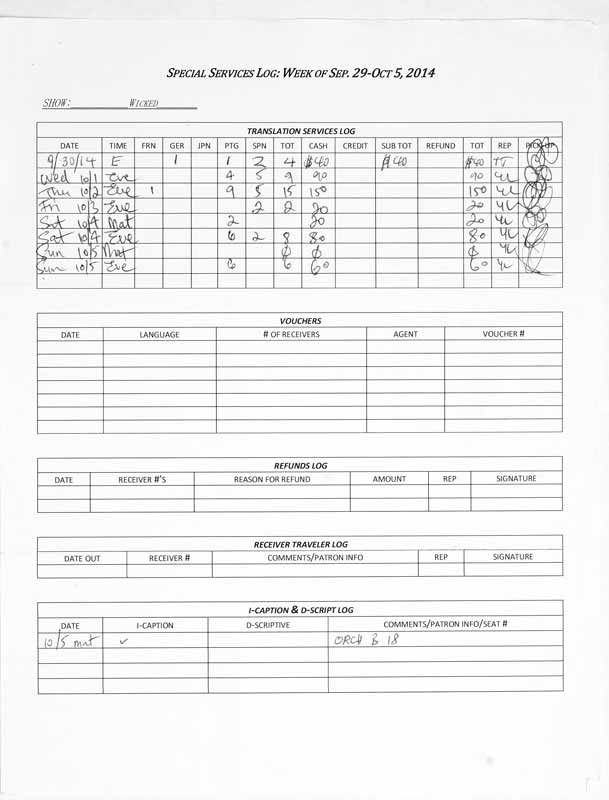 SPECIAL SERVICES LOG: WEEK OF SEP. 29-OCT 5, 2014
SHOW: WICKED
TRANSLATION SERVICES LOG
DATE TIME FRN GER JPN PTG SPN TOT CASH CREDIT SUB TOT REFUND TOT REP PICK-UP
9/30/14 E 1 1 2 4 $40 $40 $40 TT
Wed 10/1 Eve 4 5 9 90 90 YL
Thu 10/2 Eve 1 9 5 15 150 150 YL
Fri 10/3 Eve 2 2 20 20 YL
Sat 10/4 Mat 2 20 20 YL
Sat 10/4 Eve 6 2 8 80 80 YL
Sun 10/5 Mat 0 0 0 YL
Sun 10/5 Eve 6 6 60 60 YL
VOUCHERS
DATE LANGUAGE # OF RECEIVERS AGENT VOUCHER #
REFUNDS LOG
DATE RECEIVER #'S REASON FOR REFUND AMOUNT REP SIGNATURE
RECEIVER TRAVELER LOG
DATE OUT RECEIVER # COMMENTS/PATRON INFO REP SIGNATURE
I-CAPTION & D-SCRIPT LOG
DATE I-CAPTION D-SCRIPTIVE COMMENTS/PATRON INFO/SEAT #
10/5 mat ✓ ORCH B 18